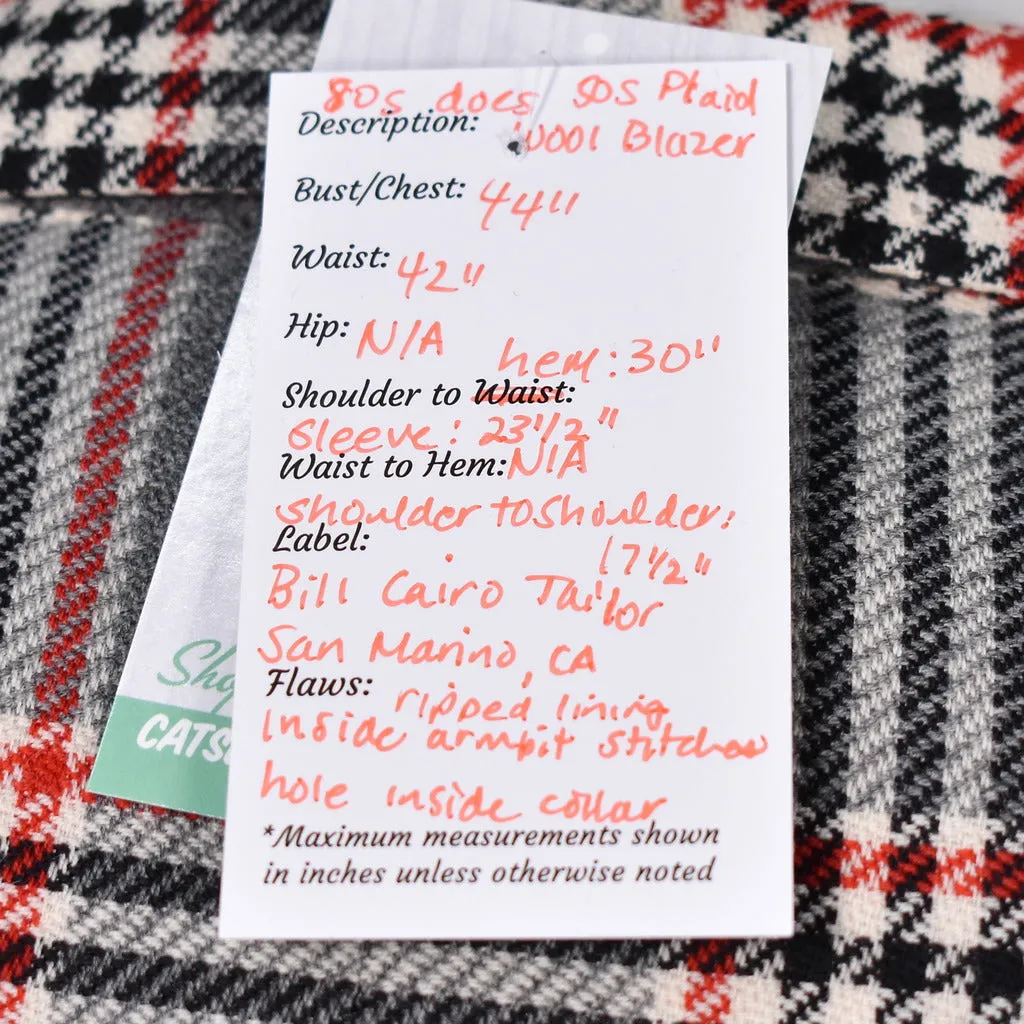 80s does 50s Plaid
Description: Wool Blazer
Bust/Chest: 44"
Waist: 42"
Hip: N/A hem: 30"
Shoulder to Waist:
sleeve: 23 1/2"
Waist to Hem: N/A
shoulder to shoulder:
Label: 17 1/2"
Bill Cairo Tailor
San Marino, CA
Flaws: ripped lining
inside armpit stitches
hole inside collar
*Maximum measurements shown
in inches unless otherwise noted